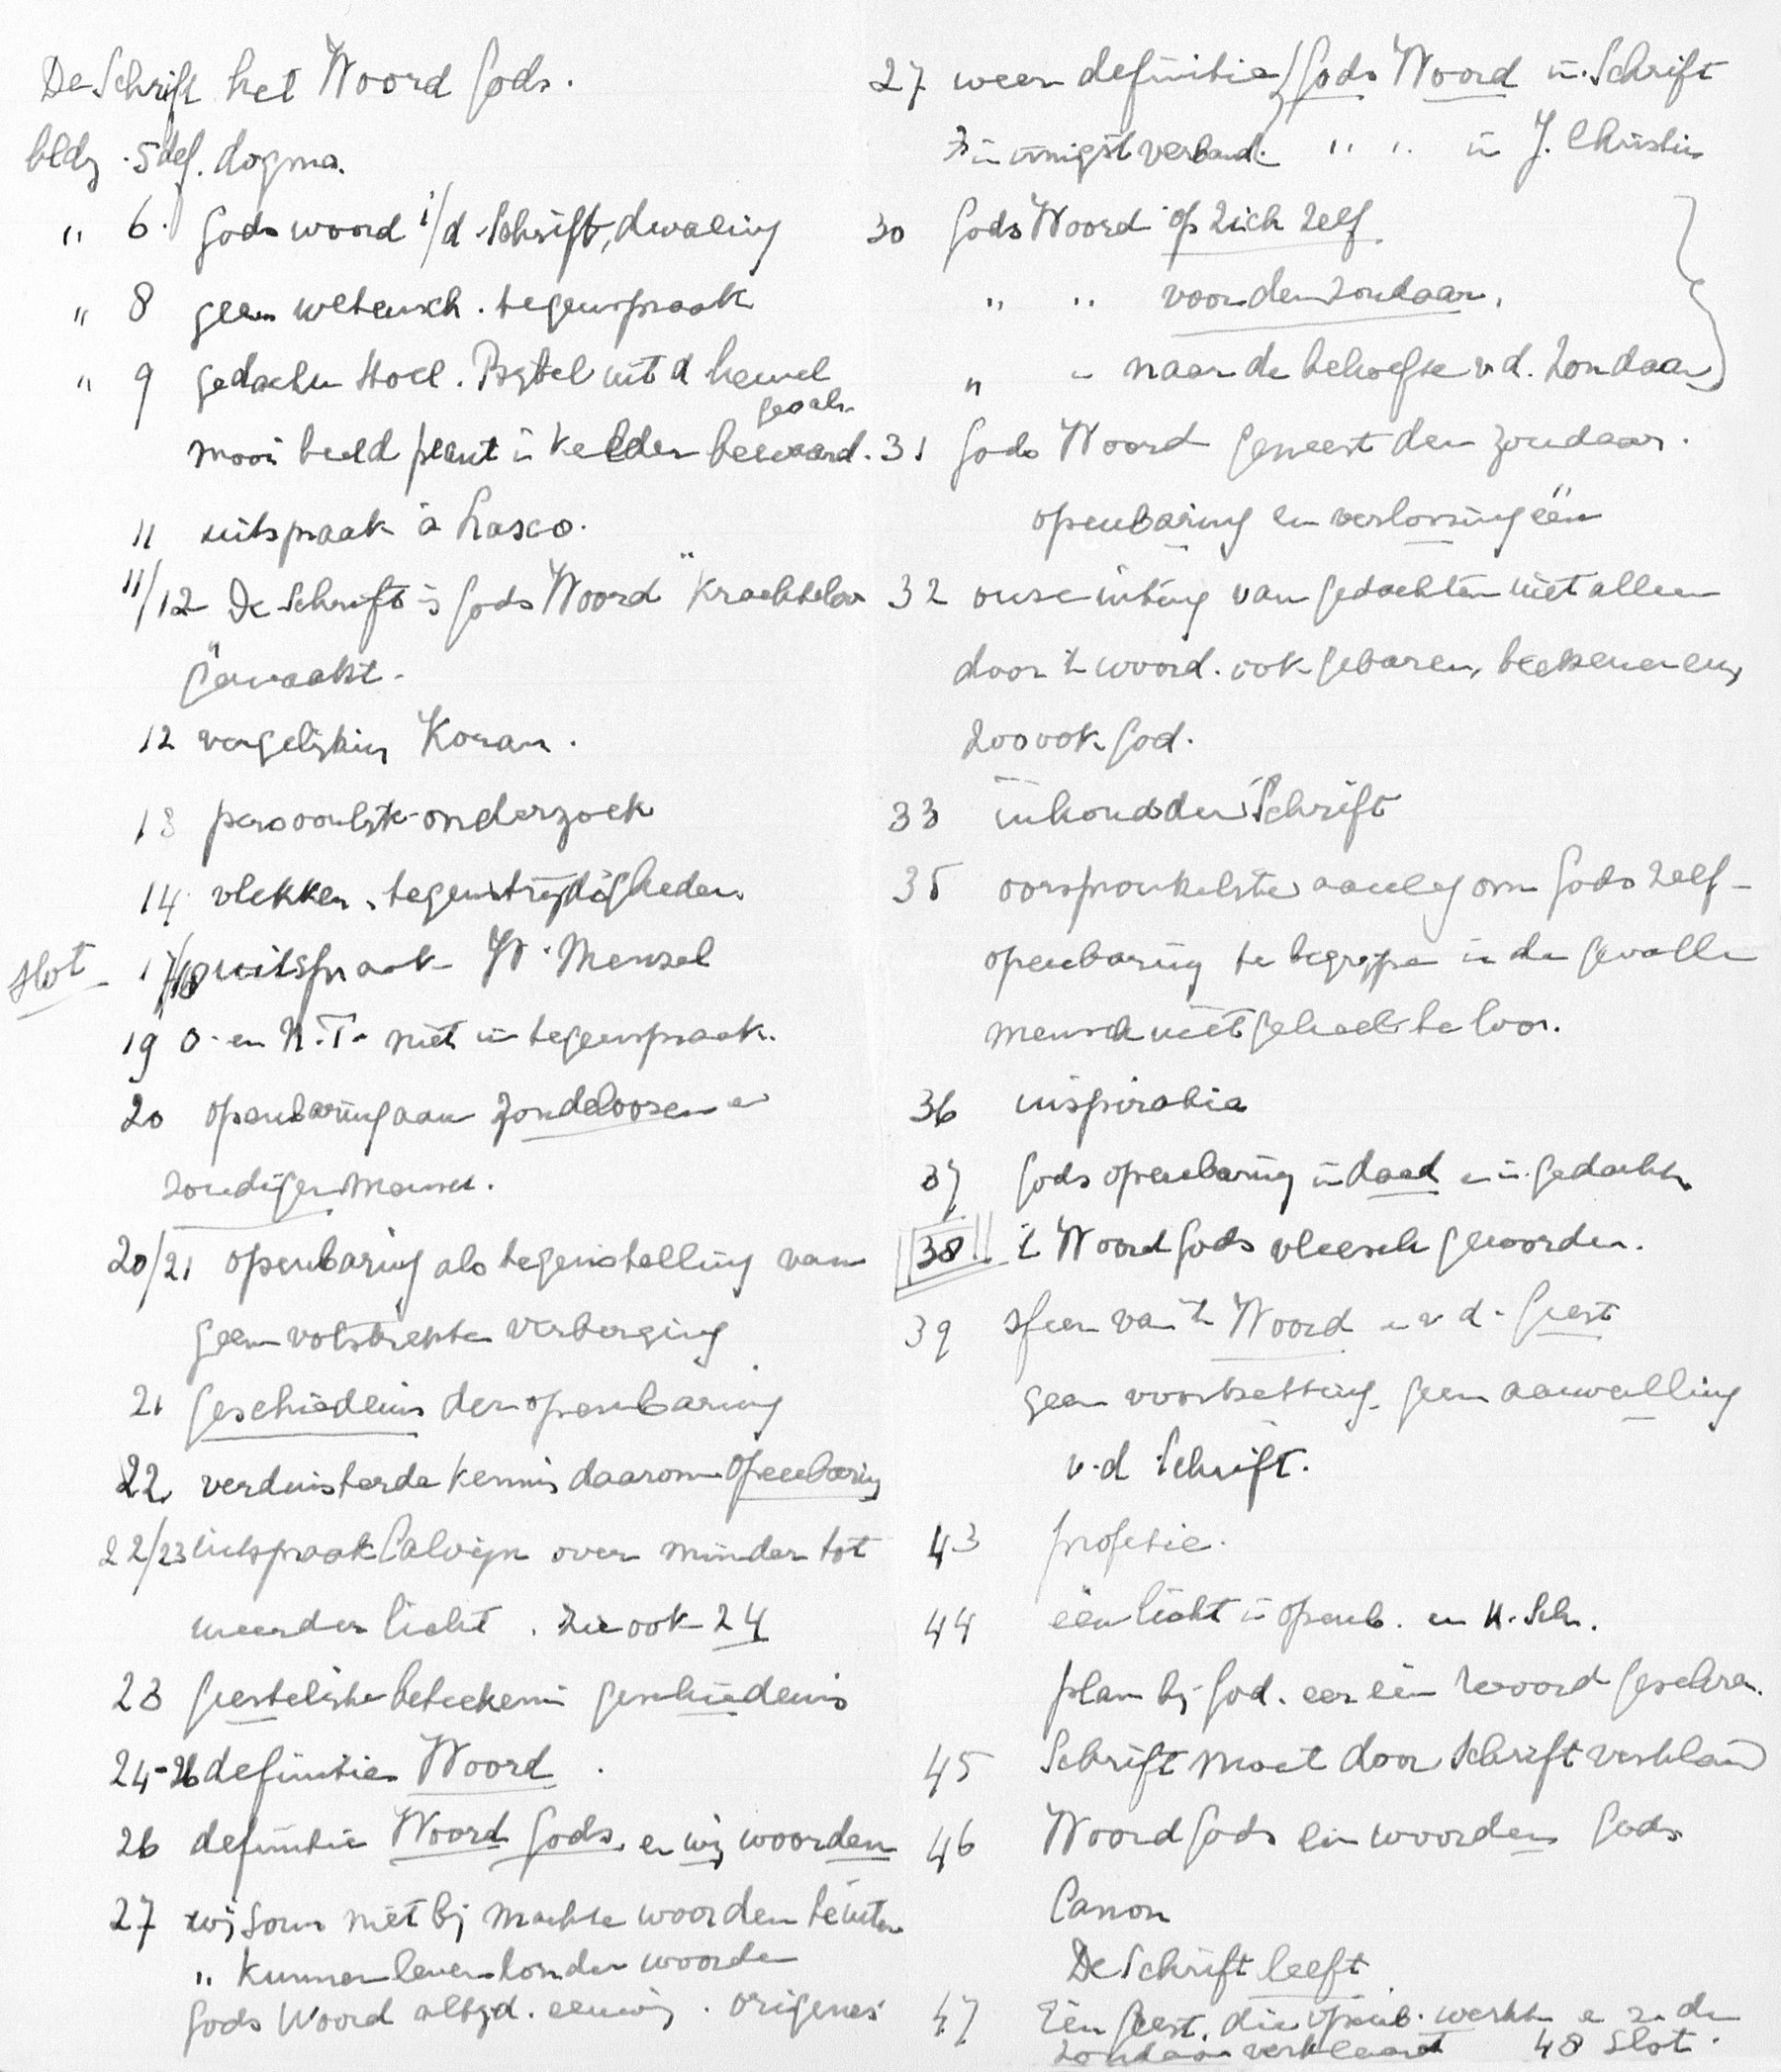 De Schrift het Woord Gods.
bldz. 5 def. dogma.
" 6. Gods woord i/d Schrift, dwaling
" 8 geen wetensch. tegenspraak
" 9 gedachte Hoel. Bijbel uit d hemel
mooi beeld plant in kelder bewaard.
11 uitspraak à Lasco.
11/12 De Schrift is Gods Woord "krachteloos
gemaakt.
12 vergelijking Koran.
13 persoonlijk onderzoek
14 vlekken, tegenstrijdigheden
slot 17/18 uitspraak W. Menzel
19 O. en N.T. niet in tegenspraak.
20 openbaring aan zondeloosen en
zondigen mensch.
20/21 openbaring als tegenstelling van
geen volstrekte verberging
21 geschiedenis der openbaring
22 verduisterde kennis daarom openbaring
22/23 uitspraak Calvijn over minder tot
meerder licht. zie ook 24
23 geestelijke beteekenis geschiedenis
24-26 definitie Woord.
26 definitie Woord Gods. en wij woorden
27 wij soms niet bij machte woorden te uiten
" kunnen leven zonder woorden
Gods Woord altijd. eeuwig. origenes
27 weer definitie Gods Woord in Schrift
in innigst verband " " in J. Christus
30 Gods Woord op zich zelf
" " voor den zondaar.
" " naar de behoefte v.d. zondaar
31 Gods Woord geneest den zondaar.
openbaring en verlossing één
32 onze uiting van gedachten niet alleen
door 't woord. ook gebaren, teekenen enz
zoo ook God.
33 inhoud der Schrift
35 oorspronkelijke aanleg om Gods zelf-
openbaring te begrijpen in de gevallen
mensch niet geheel te loor.
36 inspiratie
37 Gods openbaring in daad en in gedachte
38!! 't Woord Gods vleesch geworden.
39 sfeer van 't Woord en v.d. Geest
geen voortzetting, geen aanvulling
v.d Schrift.
43 profetie.
44 één licht in openb. en H. Schr.
plan bij God. eer een woord geschre.
45 Schrift moet door Schrift verklaard
46 Woord Gods en woorden Gods
Canon
De Schrift leeft
47 Één Geest, die openb. werkt en den
zondaar verklaard 48 Slot.